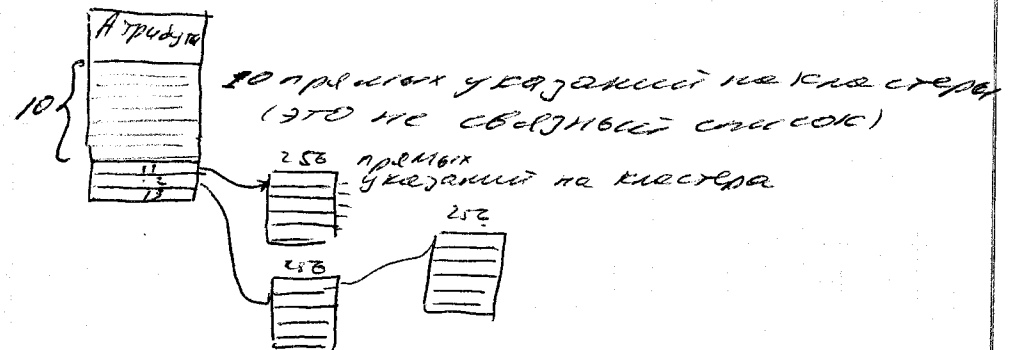 Атрибуты
10
10 прямых указаний на кластеры
(это не связный список)
11
12
13
256 прямых
указаний на кластера
256
256